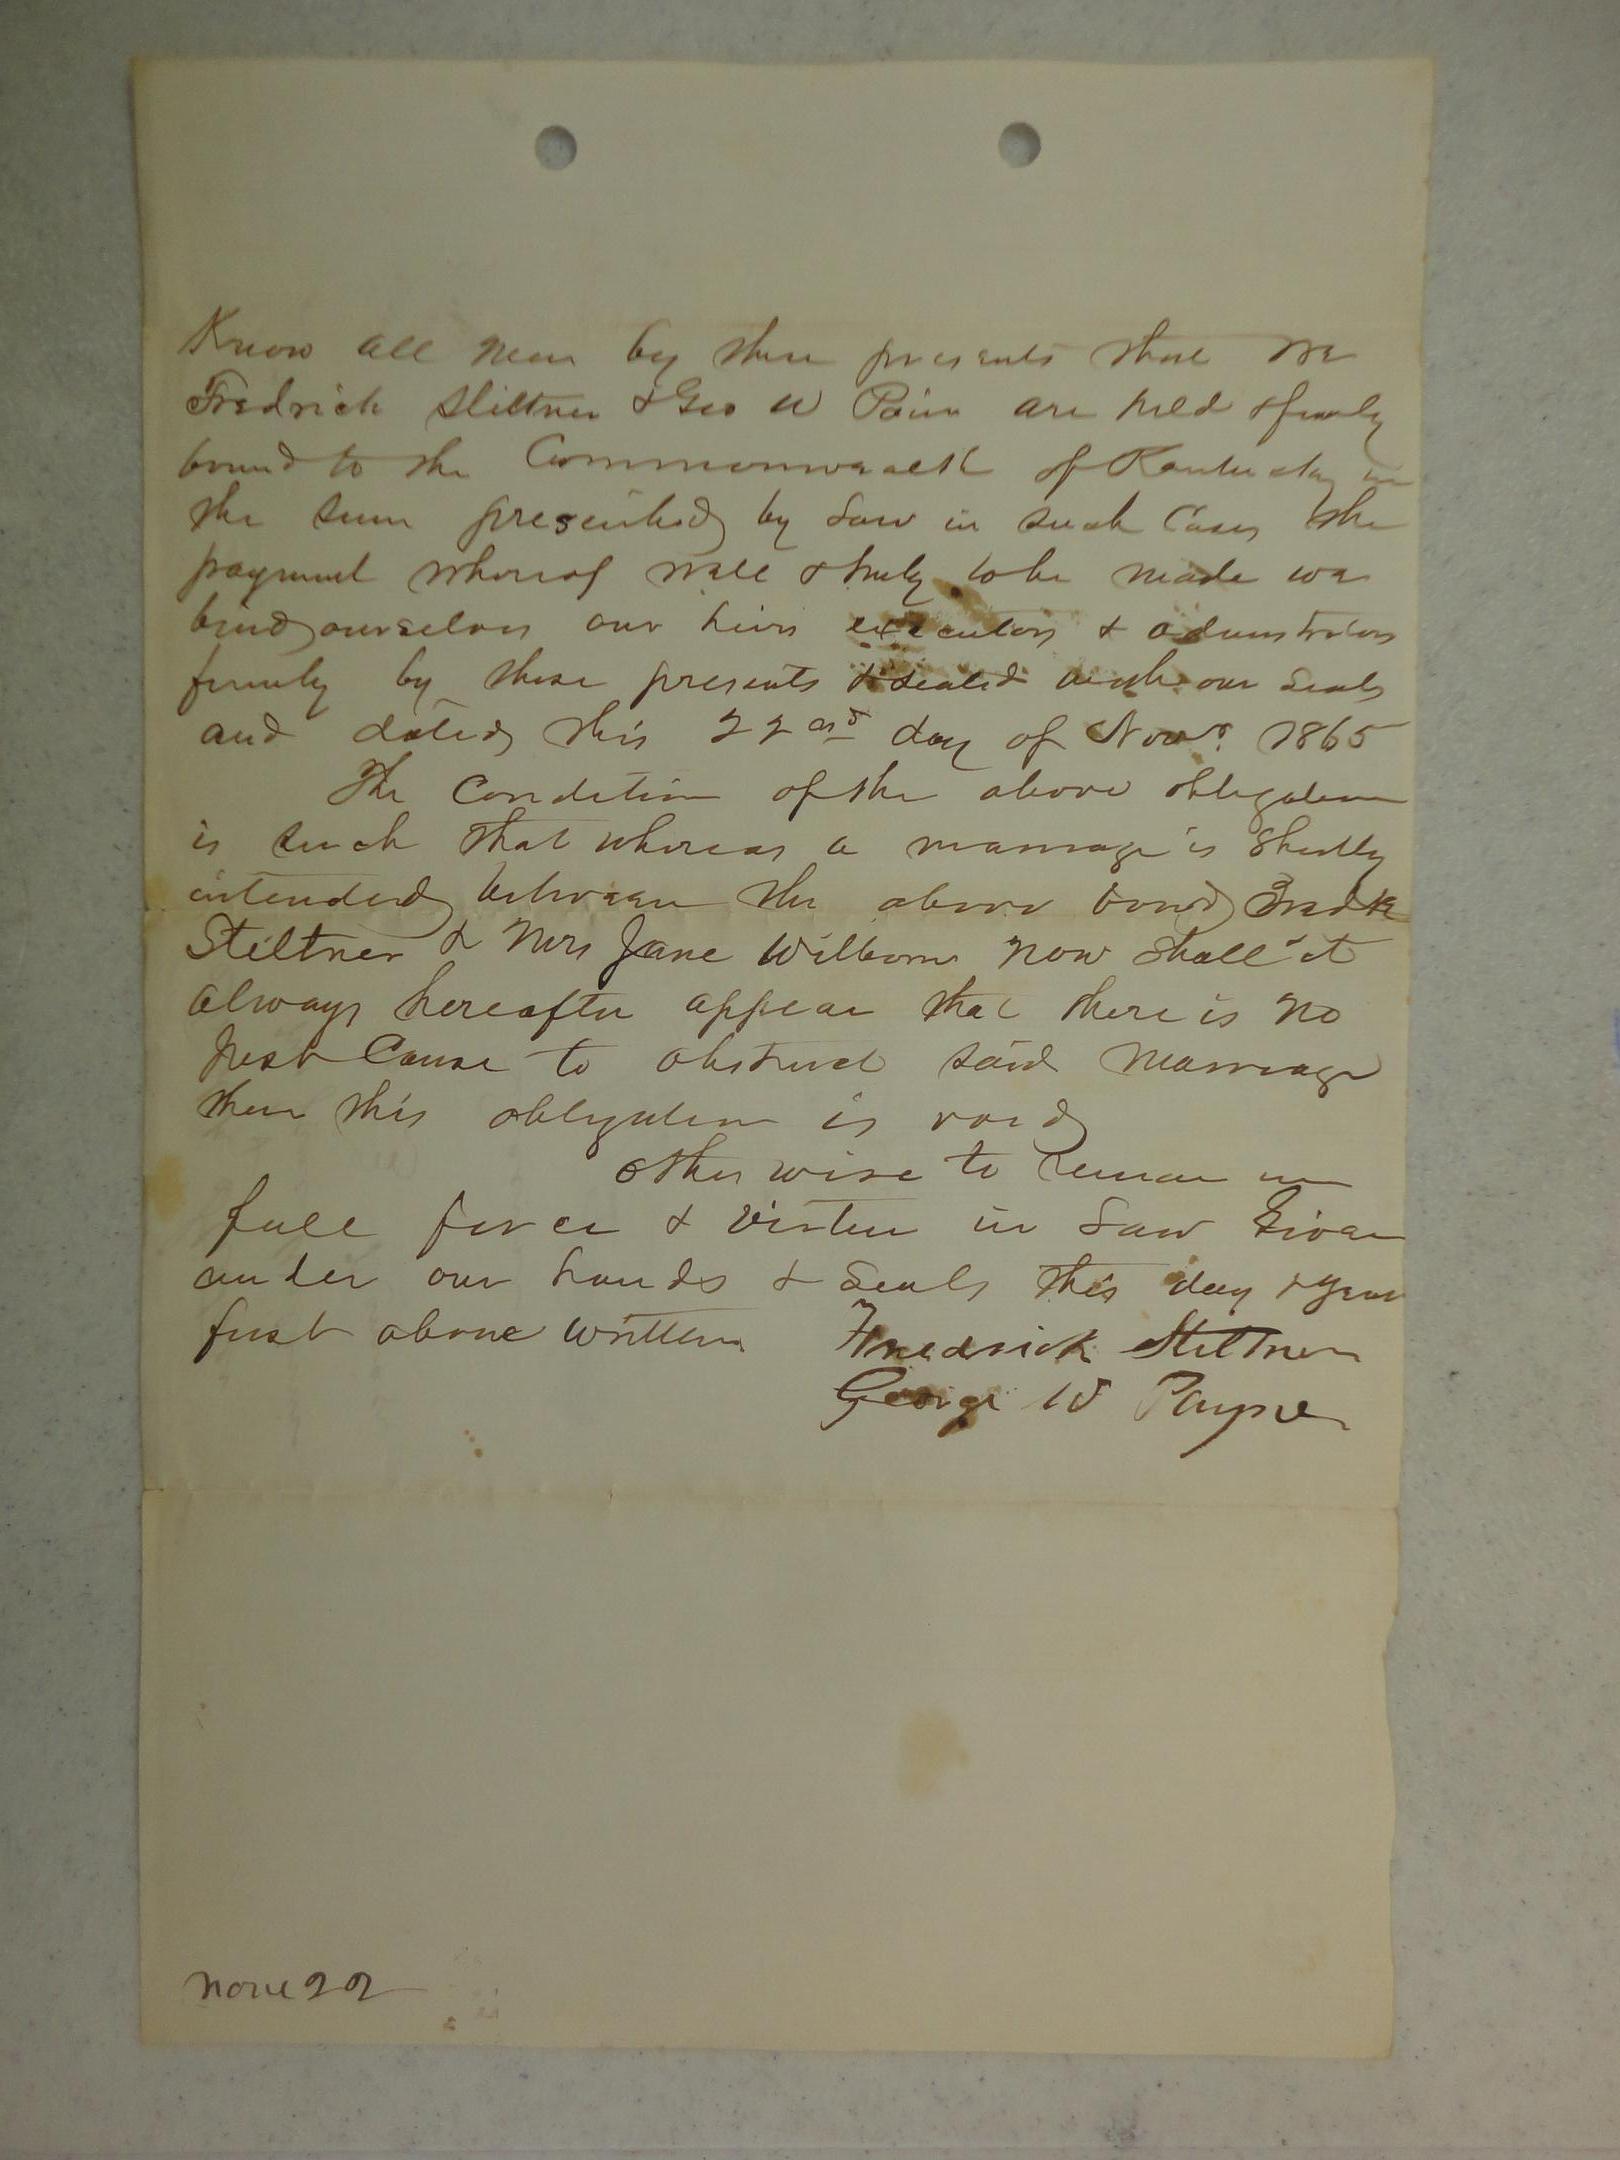 Know all men by these presents that we
Fredrick Stiltner & Geo W Pain are held & firmly
bound to the Commonwealth of Kentucky in
the sum prescribed by Law in such Cases the
payment whereof well & truly to be made we
bind ourselves our heirs executors & adminstrators
firmly by these presents & sealed with our seals
and dated this 22nd day of Novr 1865
The Condition of the above obligation
is such that whereas a marriage is Shortly
intended between the above bond Fredk
Stiltner & Mrs Jane Wilborn now shall it
always hereafter appear that there is no
just Cause to obstruct said marriage
then this obligation is void
otherwise to remain in
full force & virtue in Law Given
under our hands & Seals this day & year
first above written Fredrick Stiltner
George W Payne
Nove 22